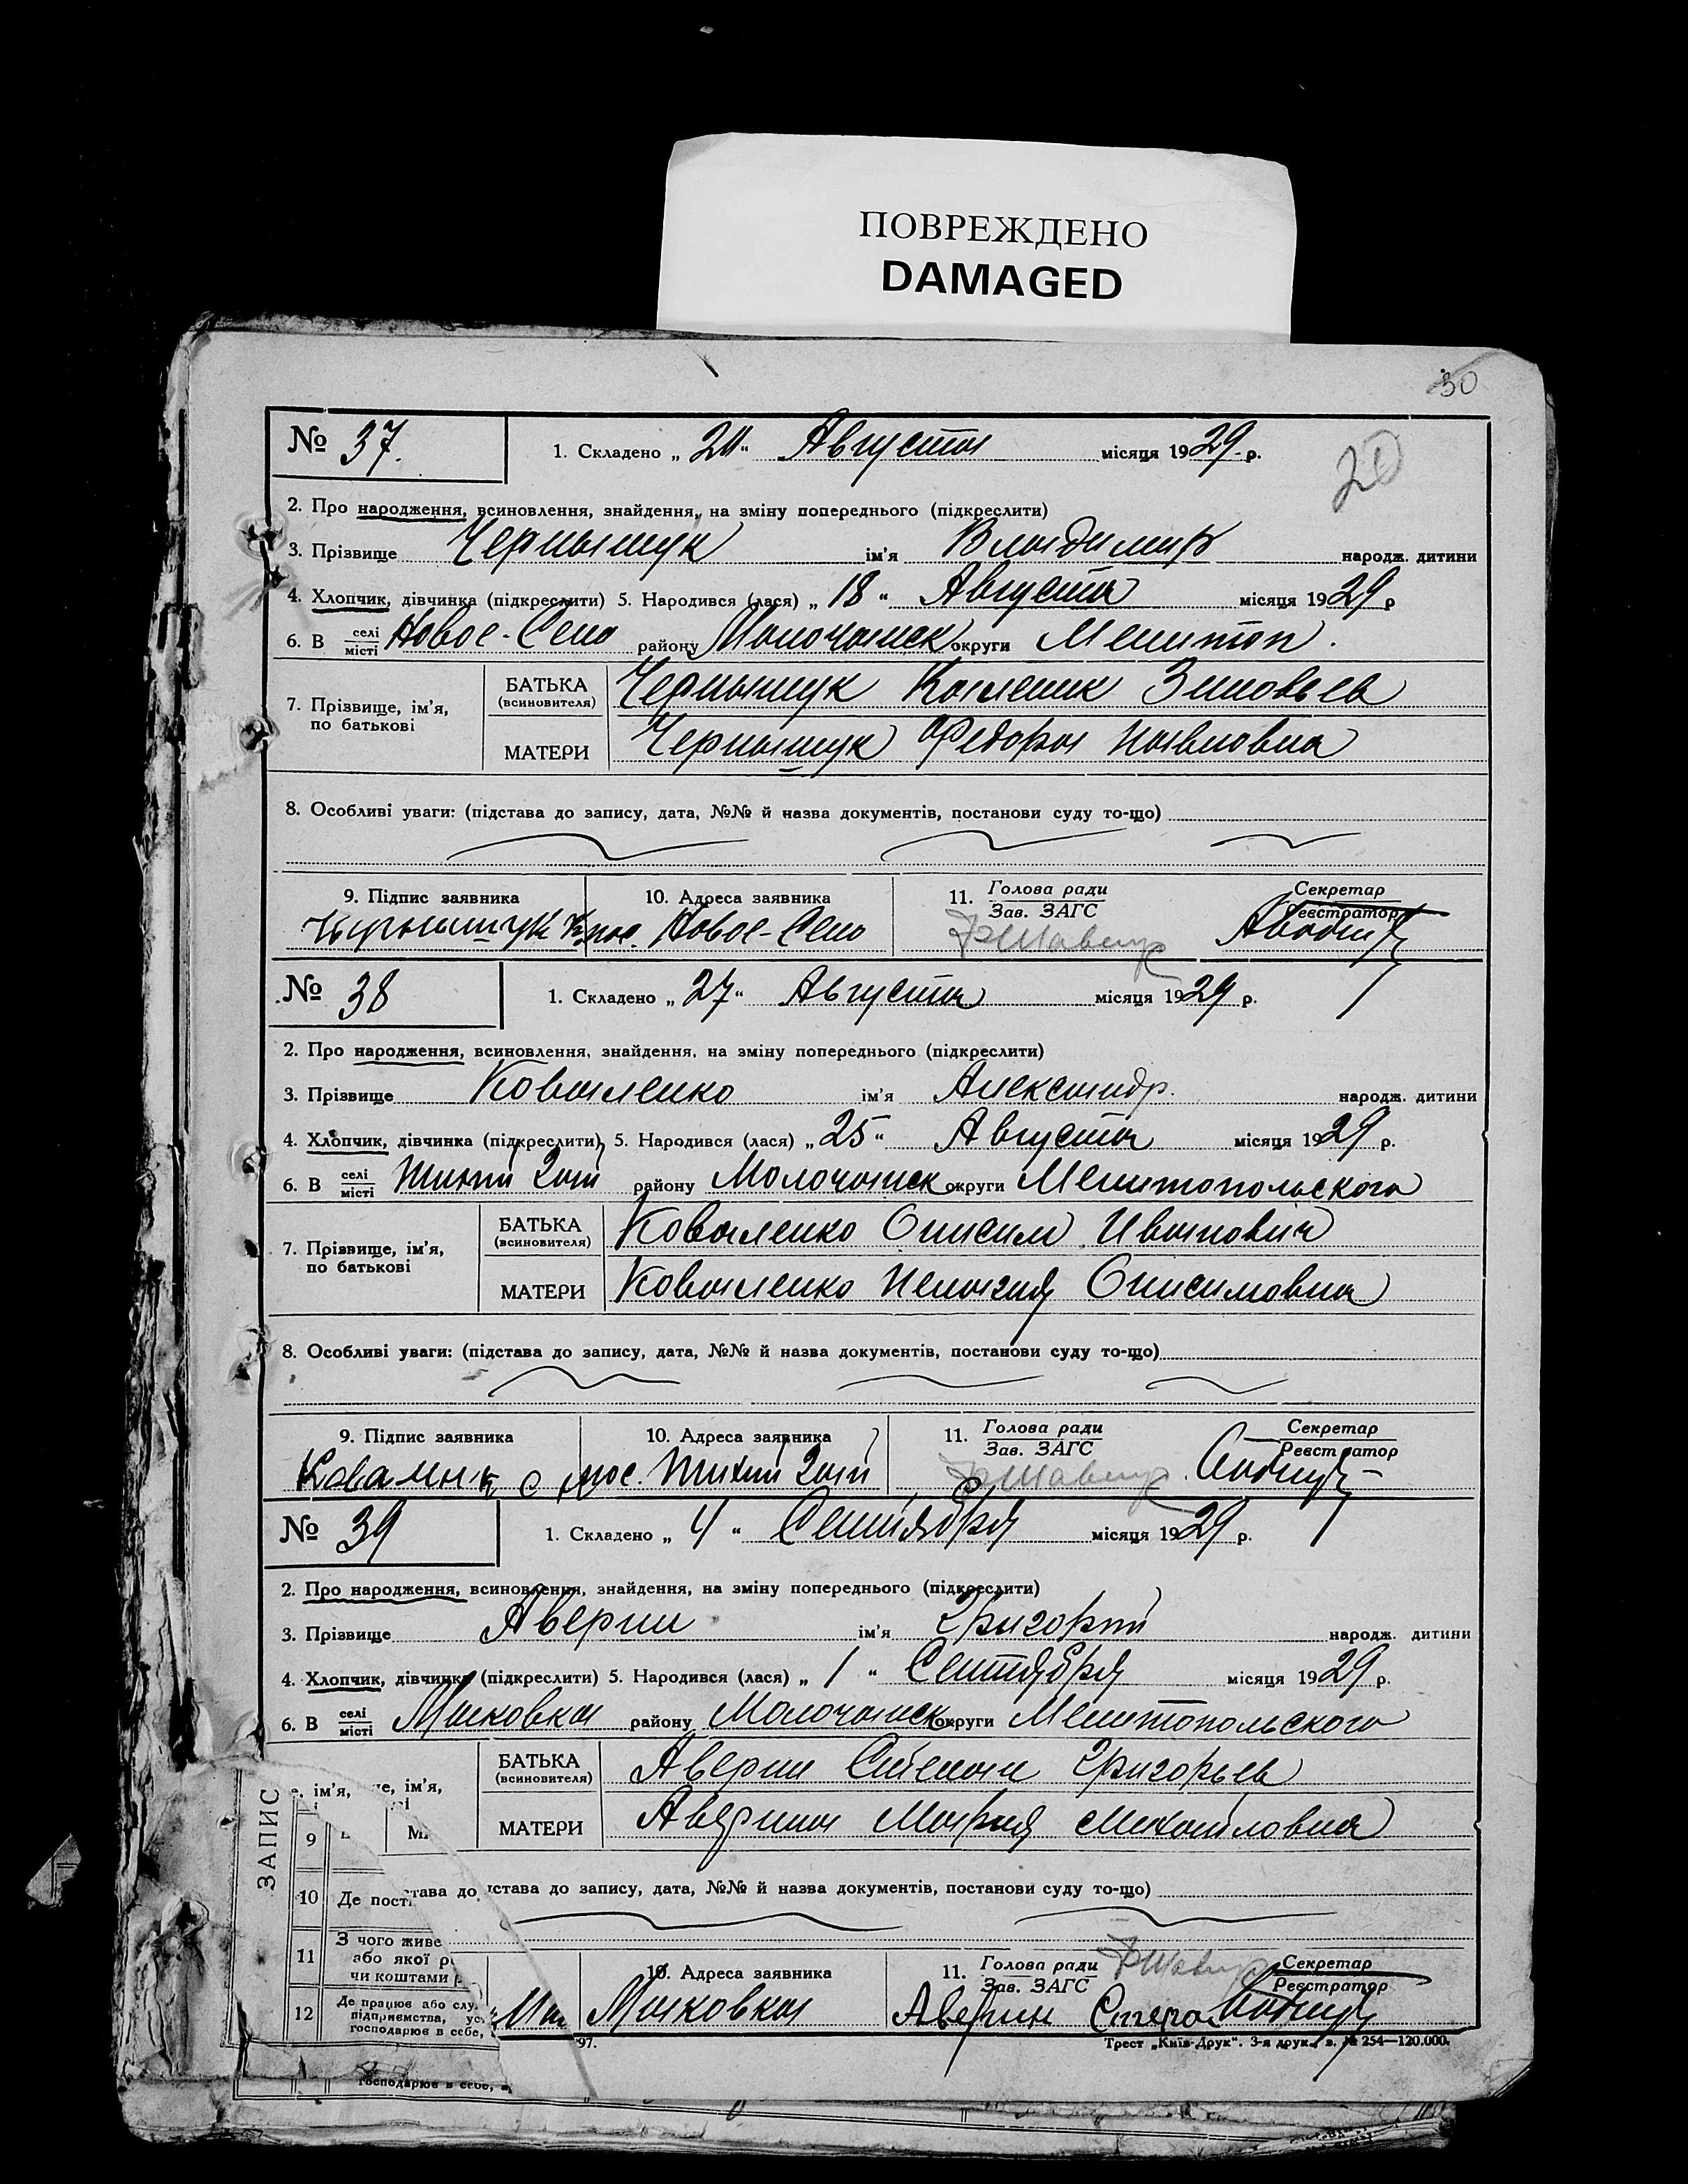 ПОВРЕЖДЕНО
DAMAGED
30
20
№ 37. 1. Складено „ 20 “ Августа місяця 1929 р.
2. Про народження, всиновлення, знайдення, на зміну попереднього (підкреслити)
3. Прізвище Чернышук ім'я Владимир народж. дитини
4. Хлопчик, дівчинка (підкреслити) 5. Народився (лася) „ 18 “ Августа місяця 1929 р
6. В селі місті Новое-Село району Молочанск округи Мелитоп.
7. Прізвище, ім'я, по батькові
БАТЬКА (всиновителя) Чернышук Зиновьев
МАТЕРИ Чернышук Федора Павловна
8. Особливі уваги: (підстава до запису, дата, №№ й назва документів, постанови суду то-що)
9. Підпис заявника 10. Адреса заявника 11. Голова ради Зав. ЗАГС Секретар Реєстратор
Чырнышук пос. Новое-Село
№ 38 1. Складено „ 27 “ Августа місяця 1929 р.
2. Про народження, всиновлення, знайдення, на зміну попереднього (підкреслити)
3. Прізвище Коваленко ім'я Александр. народж. дитини
4. Хлопчик, дівчинка (підкреслити) 5. Народився (лася) „ 25 “ Августа місяця 1929 р.
6. В селі місті Тихий Гай району Молочанск округи Мелитопольского
7. Прізвище, ім'я, по батькові
БАТЬКА (всиновителя) Коваленко Онисим Иванович
МАТЕРИ Коваленко Пелагия Онисимовна
8. Особливі уваги: (підстава до запису, дата, №№ й назва документів, постанови суду то-що)
9. Підпис заявника 10. Адреса заявника 11. Голова ради Зав. ЗАГС Секретар Реєстратор
пос. Тихий Гай
№ 39 1. Складено „ 4 “ Сентября місяця 1929 р.
2. Про народження, всиновлення, знайдення, на зміну попереднього (підкреслити)
3. Прізвище Аверин ім'я Григорий народж. дитини
4. Хлопчик, дівчинка (підкреслити) 5. Народився (лася) „ 1 “ Сентября місяця 1929 р.
6. В селі місті Маковка району Молочанск округи Мелитопольского
е, ім'я, че, ім'я,
БАТЬКА (всиновителя) Аверин Степан Григорьев
МАТЕРИ Аверина Мария Михайловна
ЗАПИС
9
10 Де пост става до істава до запису, дата, №№ й назва документів, постанови суду то-що)
11 З чого живе
або якої р
чи коштами
10. Адреса заявника 11. Голова ради Зав. ЗАГС Секретар Реєстратор
12 Де працює або слу
підприємства, ус
господарює в себе,
Маковка Аверин Степа
97. Трест „Київ-Друк“. 3-я друк. з. № 254—120.000.
господарює в себе,